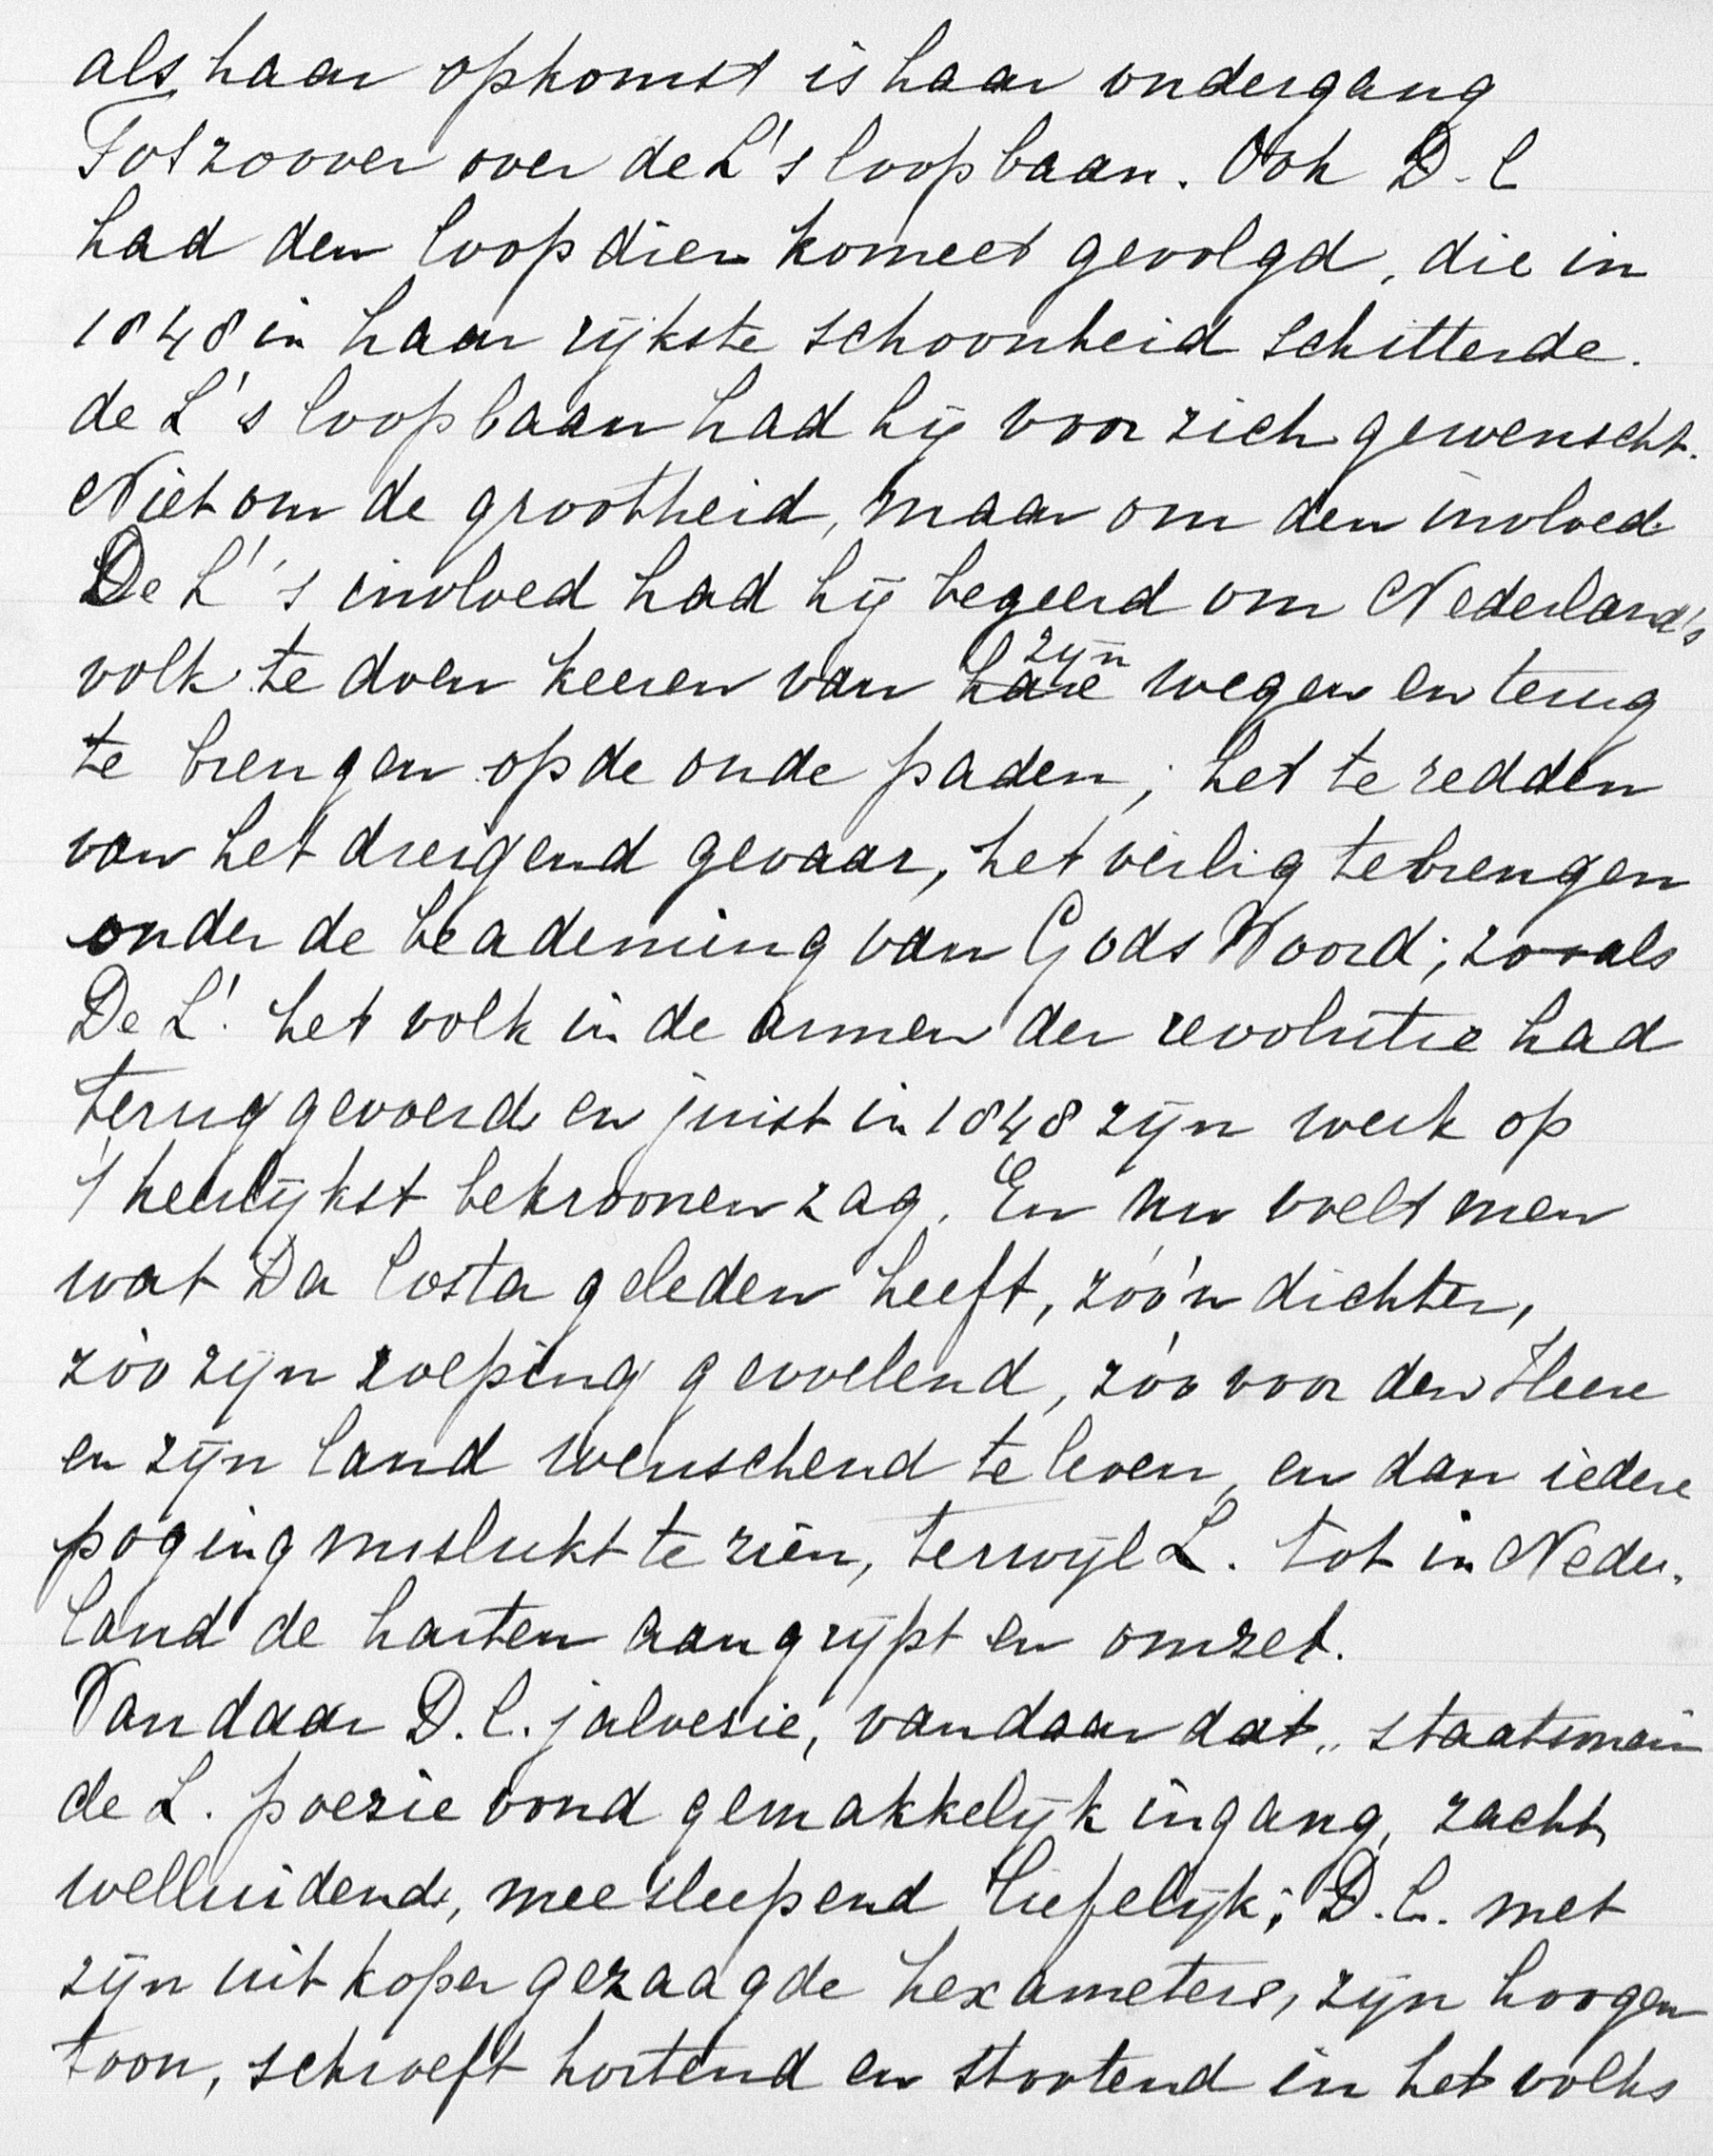 als haar opkomst is haar ondergang
Tot zoover over de L's loopbaan. Ook D. C
had den loop dien komeet gevolgd, die in
1848 in haar rijkste schoonheid schitterde.
de L's loopbaan had hij voor zich gewenscht.
Niet om de grootheid, maar om den invloed
De L's invloed had hij begeerd om Nederland's
volk te doen keeren van hare zijn wegen en terug
te brengen op de oude paden; het te redden
van het dreigend gevaar, het veilig te brengen
onder de beademing van Gods Woord; zooals
De L! het volk in de armen der revolutie had
terug gevoerd en juist in 1848 zijn werk op
't heerlijkst bekroonen zag. En nu voelt men
wat Da Costa geleden heeft, zóó'n dichter,
zóó zijn roeping gevoelend, zóó voor den Heere
en zijn land wenschend te leven, en dan iedere
poging mislukt te zien, terwijl L. tot in Neder-
land de harten aangrijpt en omzet.
Vandaar D. C. jaloesie, vandaar dat „ staatsman
de L. poezie vond gemakkelijk ingang, zacht,
welluidend, meesleepend liefelijk; D. C. met
zijn uit koper gezaagde hexameters, zijn hoogen
toon, schroeft hortend en stootend in het volks